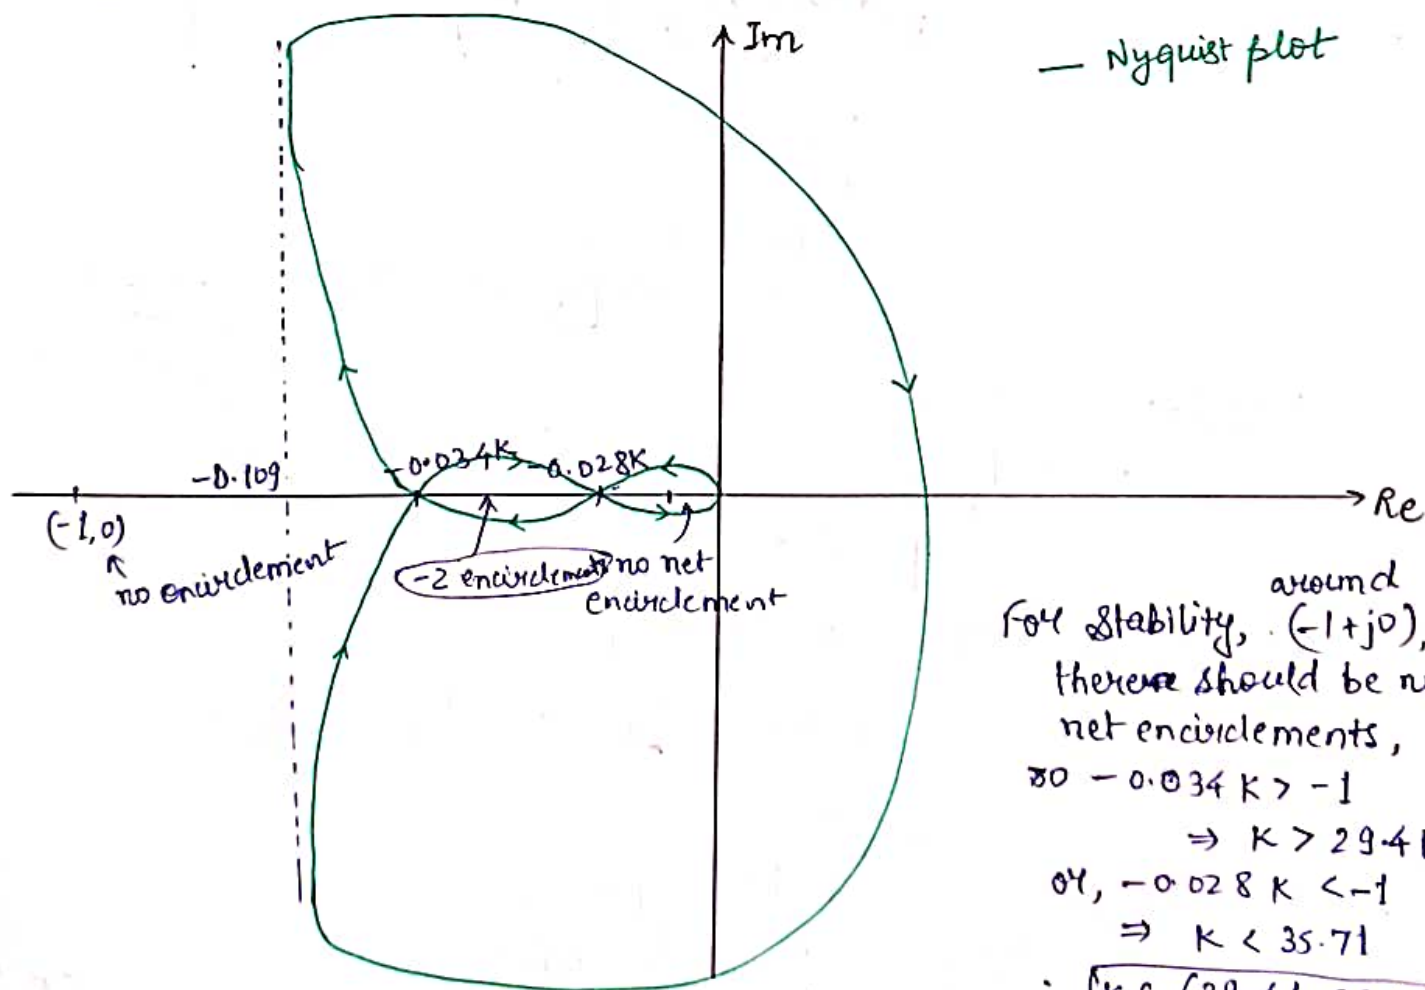 Im
— Nyquist plot
-0.109
-0.034K
-0.028K
Re
(-1,0)
no encirclement
-2 encirclements
no net
encirclement
around
For stability, (-1+j0),
there should be
net encirclements,
so -0.034 K > -1
⇒ K > 29.41
or, -0.028 K < -1
⇒ K < 35.71